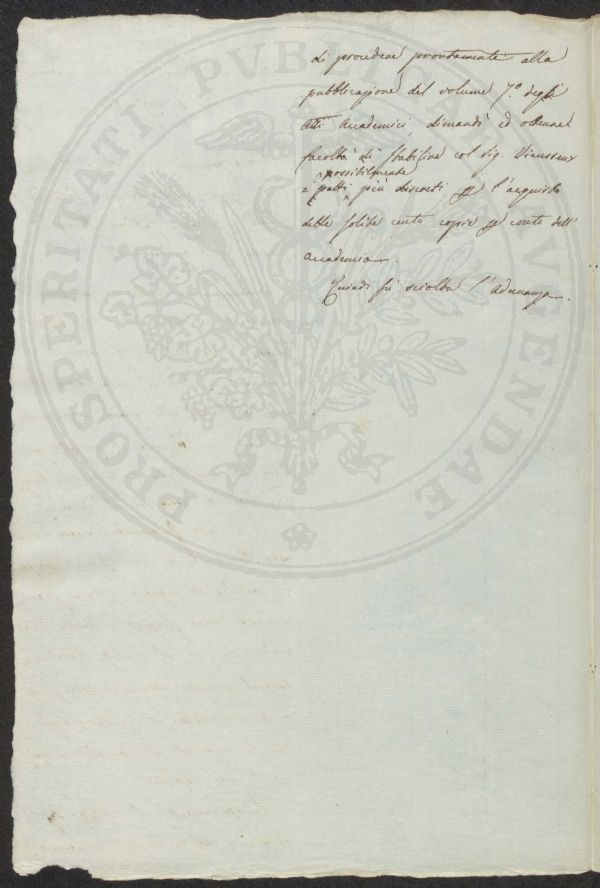 di procedere prontamente alla
pubblicazione del volume 7.º degli
Atti Accademici, dimandò ed ottenne
facoltà di stabilire col Sig. Vieusseux
possibilmente
i patti più discreti p l'acquisto
delle solite cento copie p conto dell'
Accademia.
Quindi fù sciolta l'Adunanza.
PROSPERITATI PVBLICAE AVGENDAE